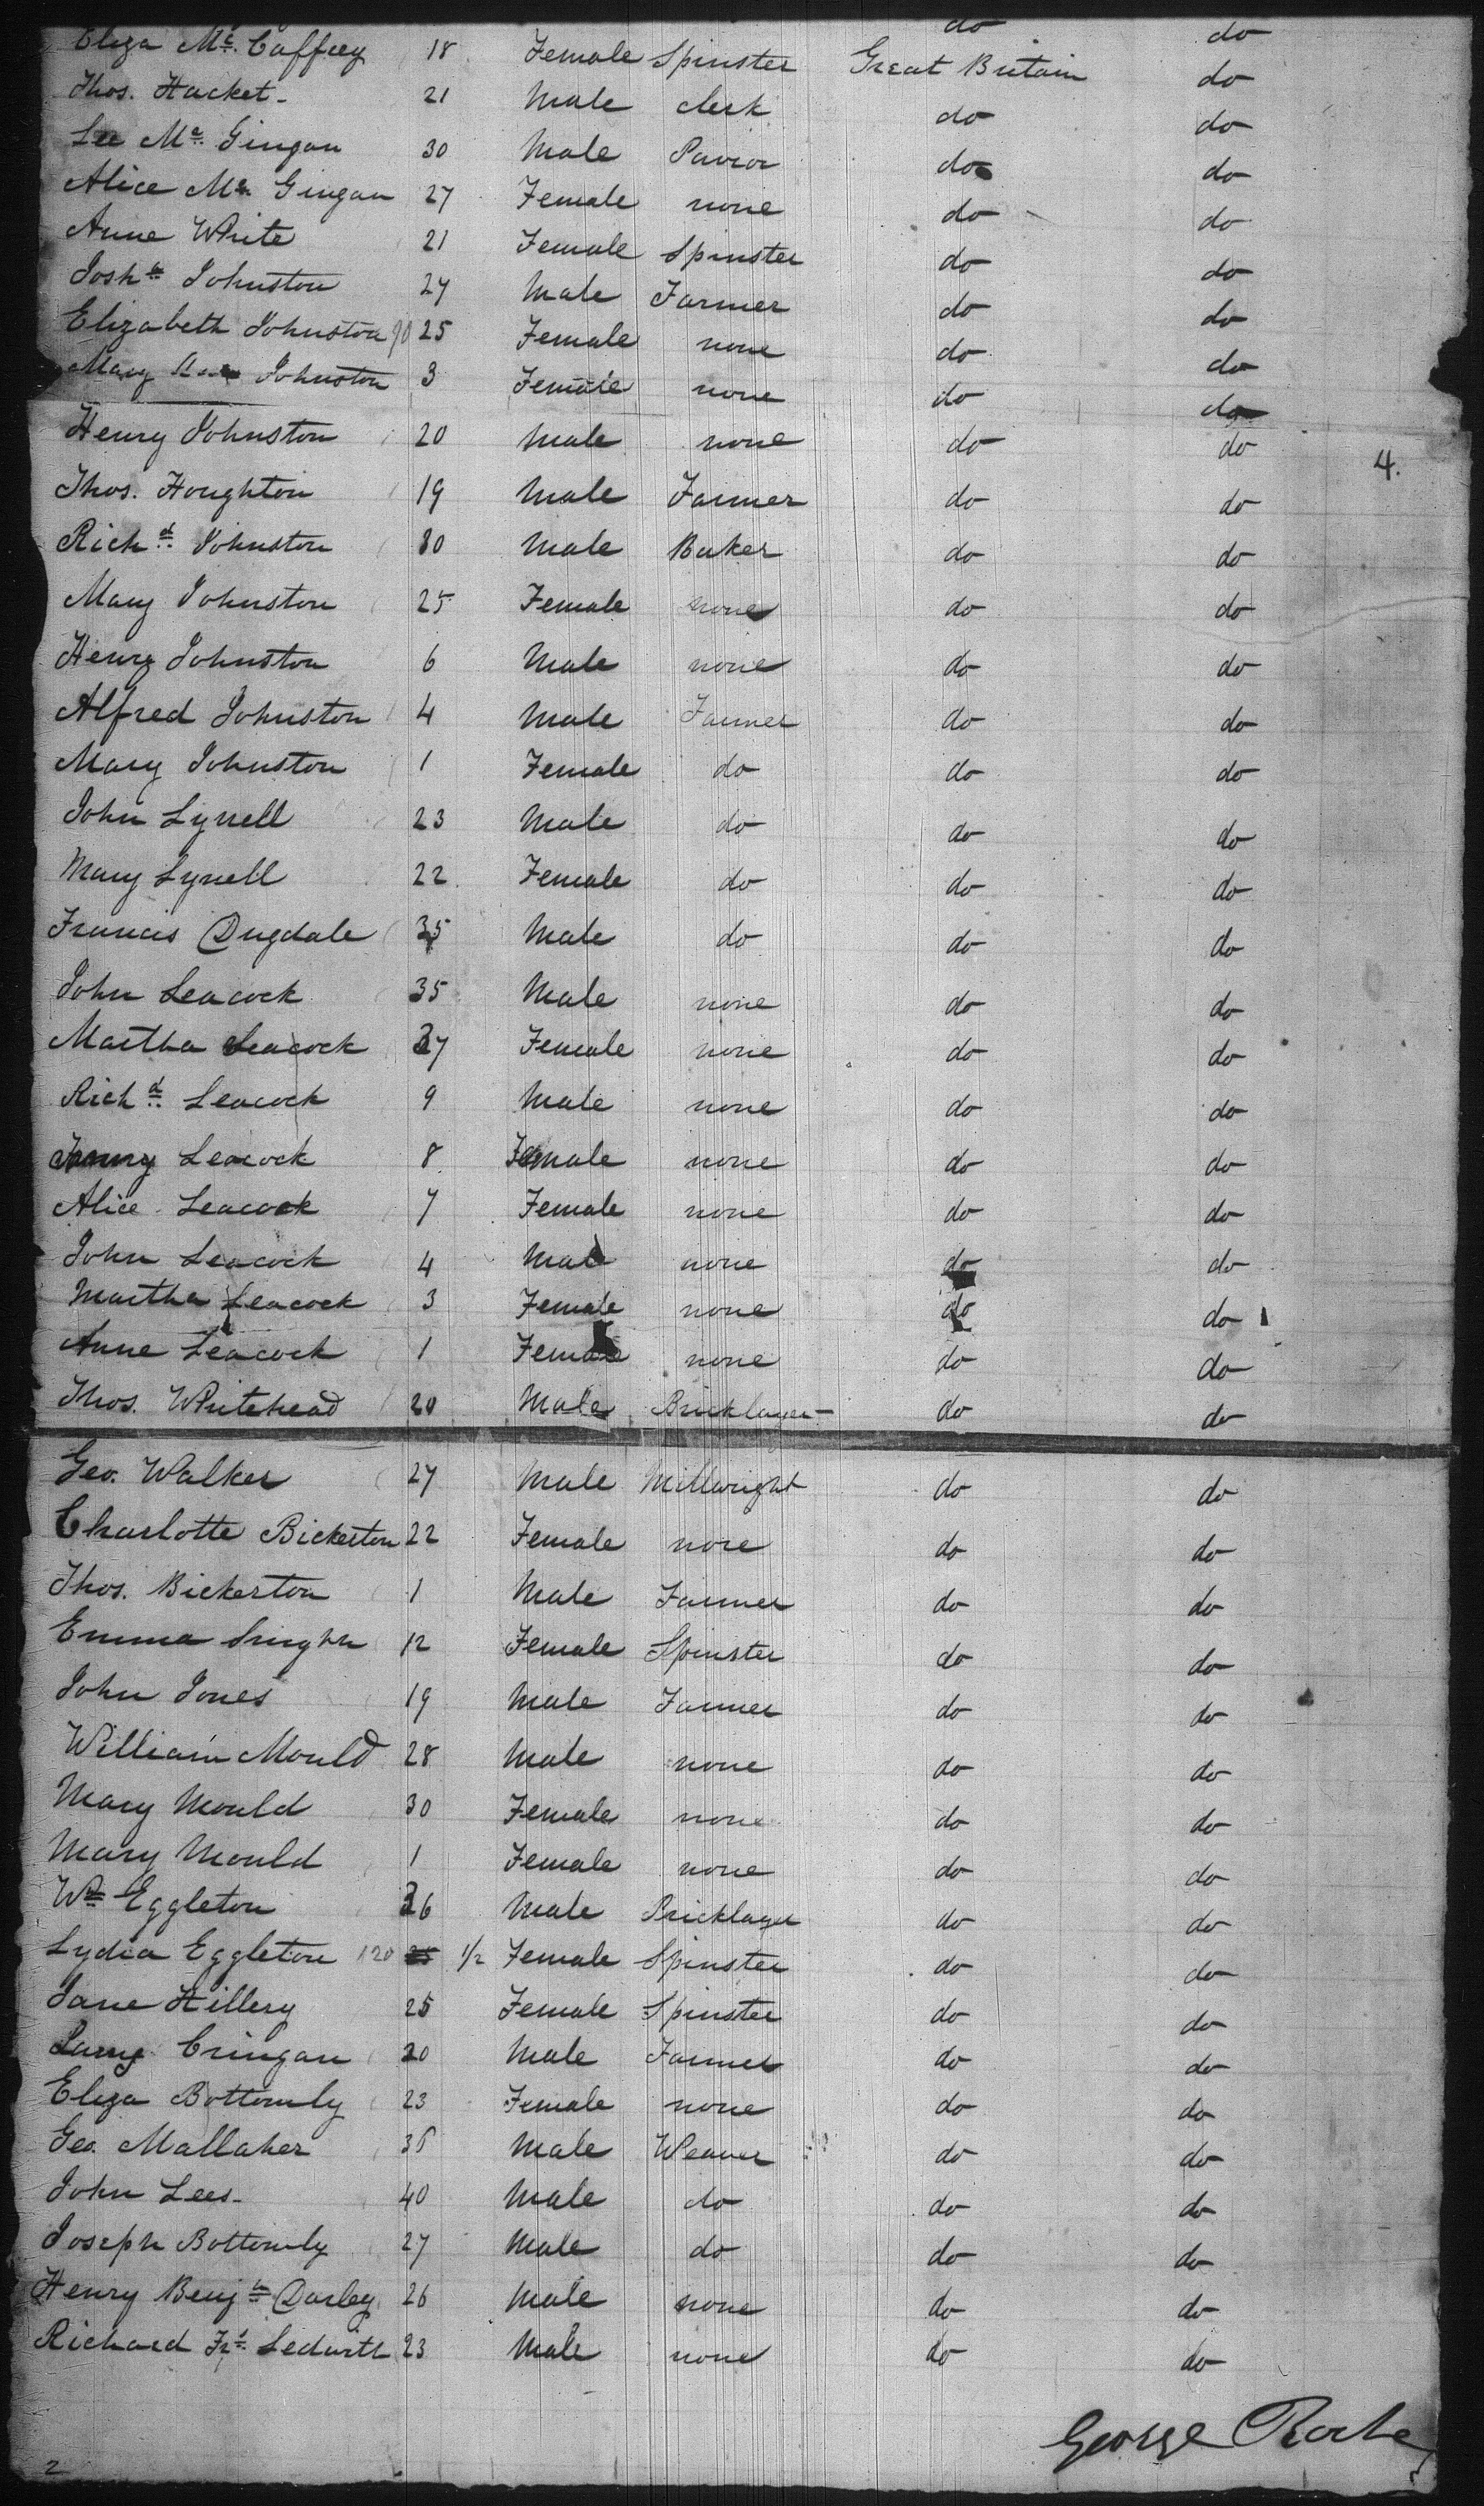 do do
Eliza Mc. Caffrey 18 Female Spinster Great Britain do
Thos. Hacket 21 Male Clerk do do
Lee Mc. Gingan 30 Male Pavior do do
Alice Mc. Gingan 27 Female none do do
Anne White 21 Female Spinster do do
Josh. Johnston 27 Male Farmer do do
Elizabeth Johnston 90 25 Female none do do
Mary Johnston 3 Female none do do
Henry Johnston 20 Male none do do 4.
Thos. Houghton 19 Male Farmer do do
Richd. Johnston 30 Male Baker do do
Mary Johnston 25 Female none do do
Henry Johnston 6 Male none do do
Alfred Johnston 4 Male Farmer do do
Mary Johnston 1 Female do do do
John Lynell 23 Male do do do
Mary Lynell 22 Female do do do
Francis Dugdale 35 Male do do do
John Leacock 35 Male none do do
Martha Leacock 37 Female none do do
Richd. Leacock 9 Male none do do
Leacock 8 Female none do do
Alice Leacock 7 Female none do do
John Leacock 4 Male none do do
Martha Leacock 3 Female none do do
Anne Leacock 1 Female none do do
Thos. Whitehead 20 Male Bricklayer do do
Geo. Walker 27 Male Millwright do do
Charlotte Bickerton 22 Female none do do
Thos. Bickerton 1 Male Farmer do do
Emma 12 Female Spinster do do
John Jones 19 Male Farmer do do
William Mould 28 Male none do do
Mary Mould 30 Female none do do
Mary Mould 1 Female none do do
Wm Eggleton 26 Male Bricklayer do do
Lydia Eggleton 120 1/2 Female Spinster do do
Jane Hillery 25 Female Spinster do do
Cringan 20 Male Farmer do do
Eliza Bottomly 23 Female none do do
Geo. Mallaher 35 Male Weaver do do
John Lees 40 Male do do do
Joseph Bottomly 27 Male do do do
Henry Benjn Darley 26 Male none do do
Richard 23 Male none do do
George Roche
2